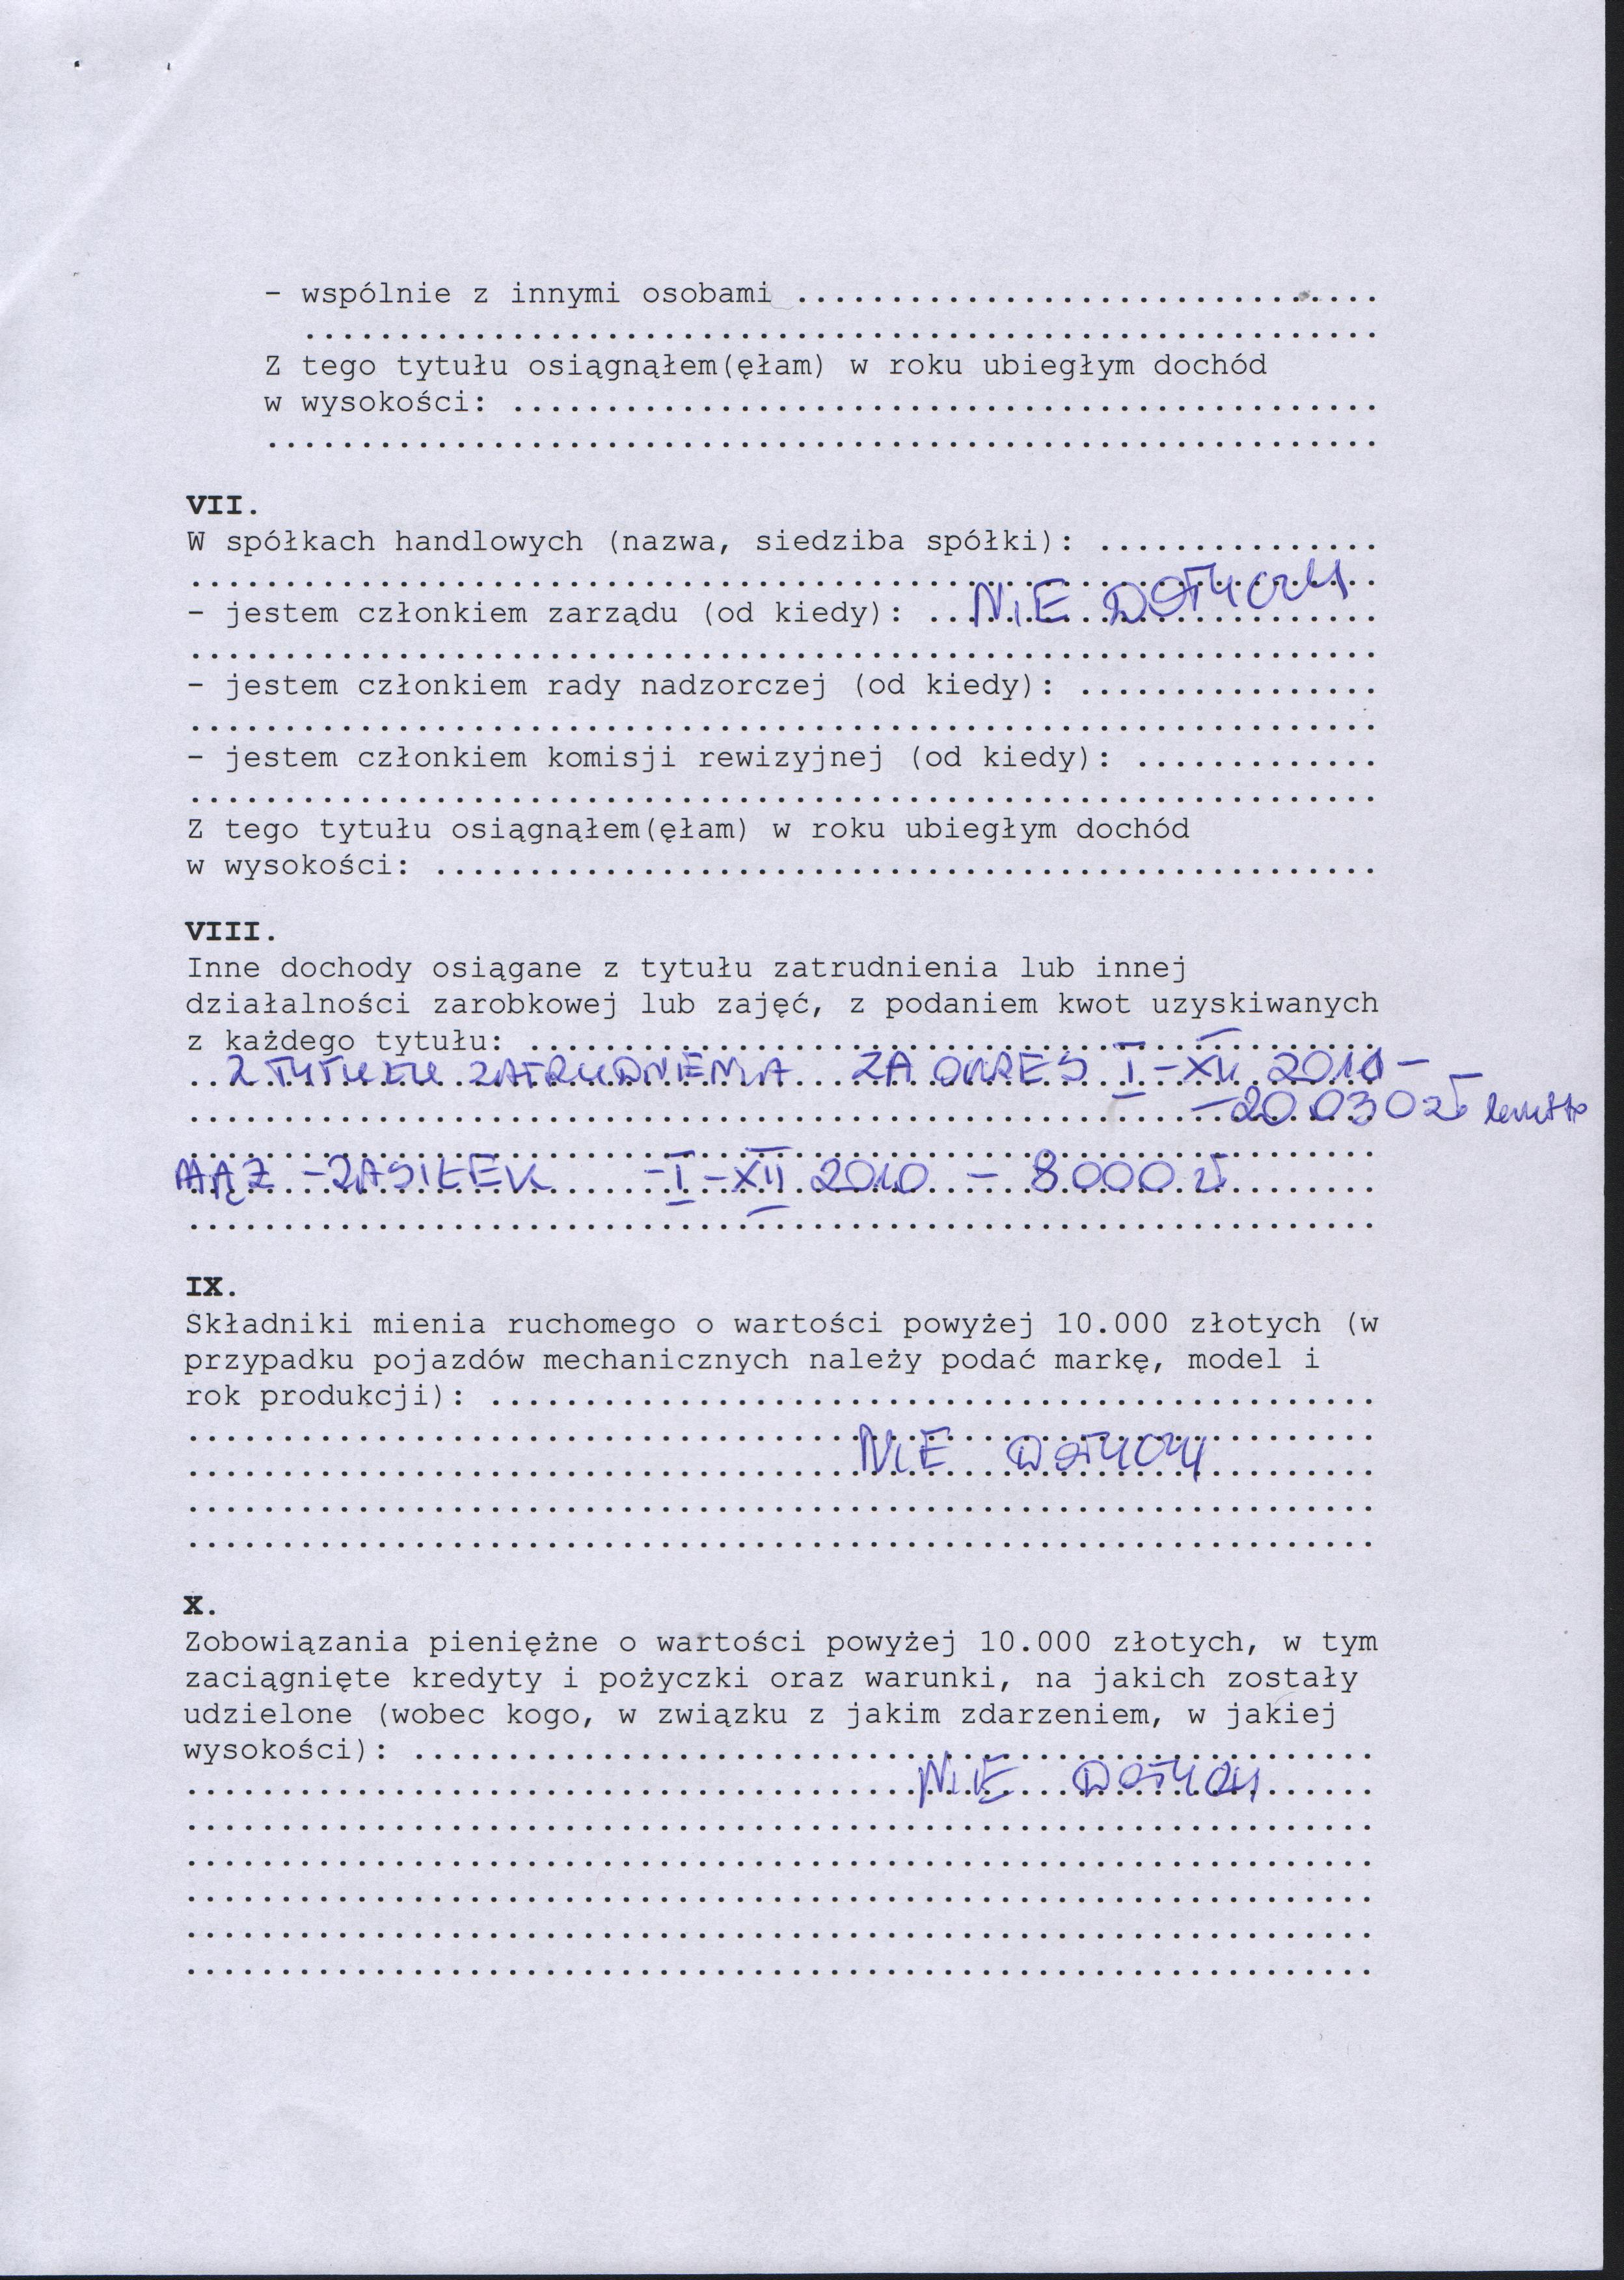 - wspólnie z innymi osobami ...............................
.........................................................
Z tego tytułu osiągnąłem(ęłam) w roku ubiegłym dochód
w wysokości: ..............................................
...........................................................
VII.
W spółkach handlowych (nazwa, siedziba spółki): ...............
...............................................................
- jestem członkiem zarządu (od kiedy): .. NIE DOTYCZY
...............................................................
- jestem członkiem rady nadzorczej (od kiedy): ................
...............................................................
- jestem członkiem komisji rewizyjnej (od kiedy): .............
...............................................................
Z tego tytułu osiągnąłem(ęłam) w roku ubiegłym dochód
w wysokości: ..................................................
VIII.
Inne dochody osiągane z tytułu zatrudnienia lub innej
działalności zarobkowej lub zajęć, z podaniem kwot uzyskiwanych
z każdego tytułu: .............................................
Z TYTUŁU ZATRUDNIENIA ZA OKRES I-XII 2010 -
- 20 030 zł brutto
MĄŻ - ZASIŁEK - I-XII 2010 - 8.000 zł
...............................................................
IX.
Składniki mienia ruchomego o wartości powyżej 10.000 złotych (w
przypadku pojazdów mechanicznych należy podać markę, model i
rok produkcji): ...............................................
NIE DOTYCZY
...............................................................
...............................................................
X.
Zobowiązania pieniężne o wartości powyżej 10.000 złotych, w tym
zaciągnięte kredyty i pożyczki oraz warunki, na jakich zostały
udzielone (wobec kogo, w związku z jakim zdarzeniem, w jakiej
wysokości): ...................................................
NIE DOTYCZY
...............................................................
...............................................................
...............................................................
...............................................................
...............................................................